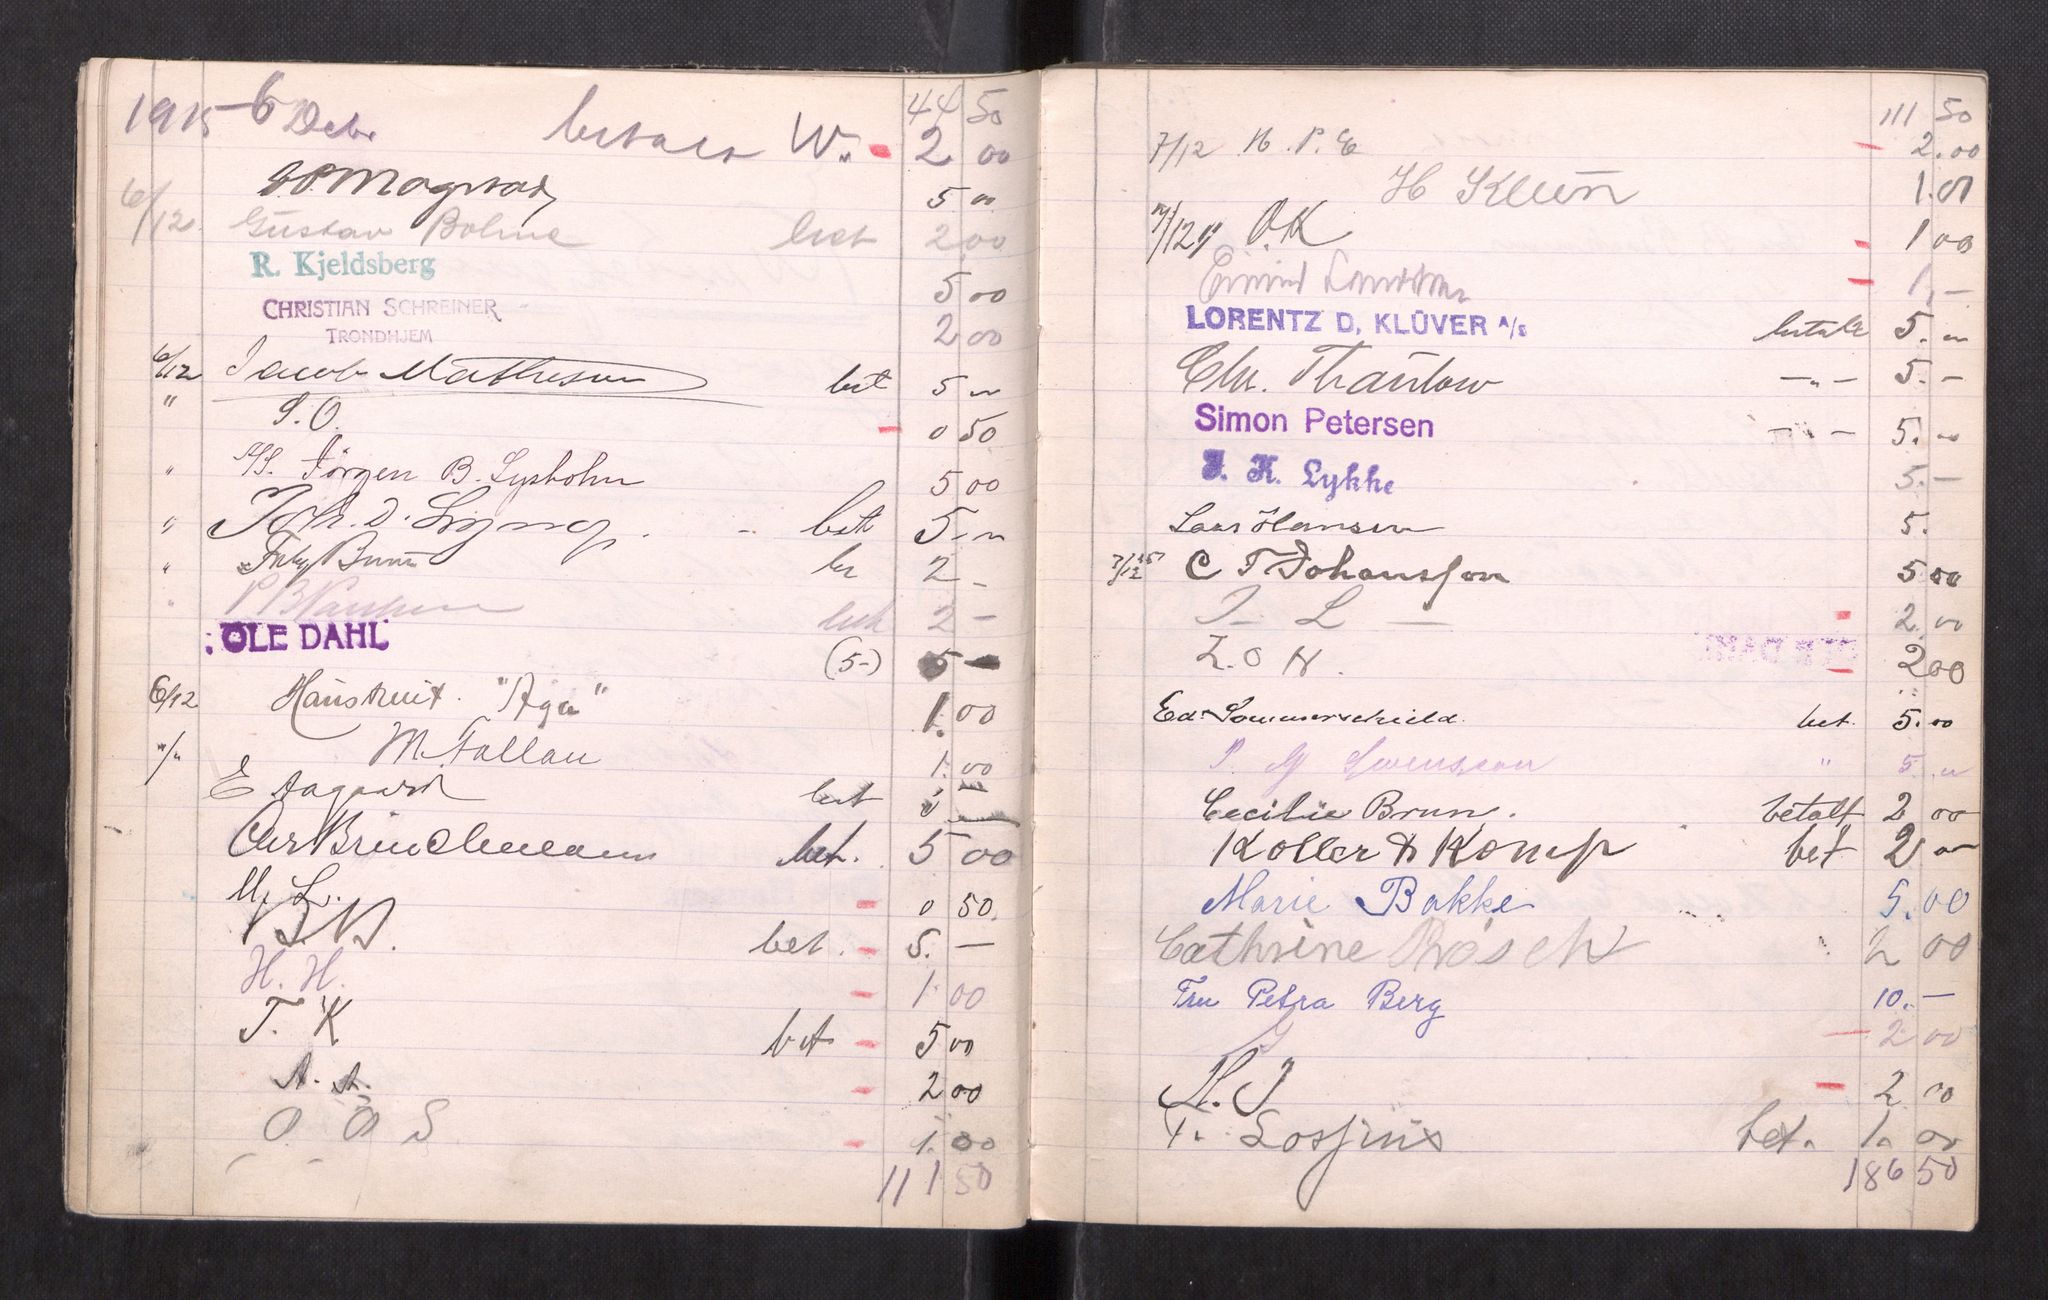 44 50
1915 6 Debr betalt W. - 2 00
Magstad 5 00
6/12 Gustav Bohne bet 2 00
R. Kjeldsberg 5 00
CHRISTIAN SCHREINER
TRONDHJEM 2 00
6/12 Jacob Matheson bet 5 "
" S. O. - 0 50
" A/S. Jörgen B. Lysholm 5 00
" Joh. D. bet 5 - "
" Bruun be 2 -
" P B bet 2 -
OLE DAHL (5-) 5 -
6/12 Hanskeuit. "Aga" 1. 00
"/" M. Fallan 1. 00
E Aagaard bet
Chr Brinchmann bet. 5 00
M. L. - 0 50
B. B. bet. - 5. -
H. H. - 1. 00
T. K bet - 5 00
A. A. - 2 00
O A S - 1. 00
111 50
111 50
7/12 H. P. E - 2. 00
H Kleven 1. 00
7/12 O. K - 1 00
- 1, -
LORENTZ D, KLÜVER A/S betalt 5. "
Chr. Thaulow - " - 5. -
Simon Petersen - " - 5. "
J. K. Lykke 5. -
Lars Hansen 5.
7/12 15 C T Johansson 5 00
T - L - - 2. 00
Z. O N. - 2 00
Ed. Sommerschield. bet. 5. 00
P. M Svensson " 5. "
Cecilie Brun. betalt 2 00
Koller & Komp bet 2 00
Marie Bakke 5. 00
Cathrine Rösch 2 00
Fru Petra Berg 10. -
- 2 00
H. J - 2 00
F. Losjius bet. 1. 00
186 50